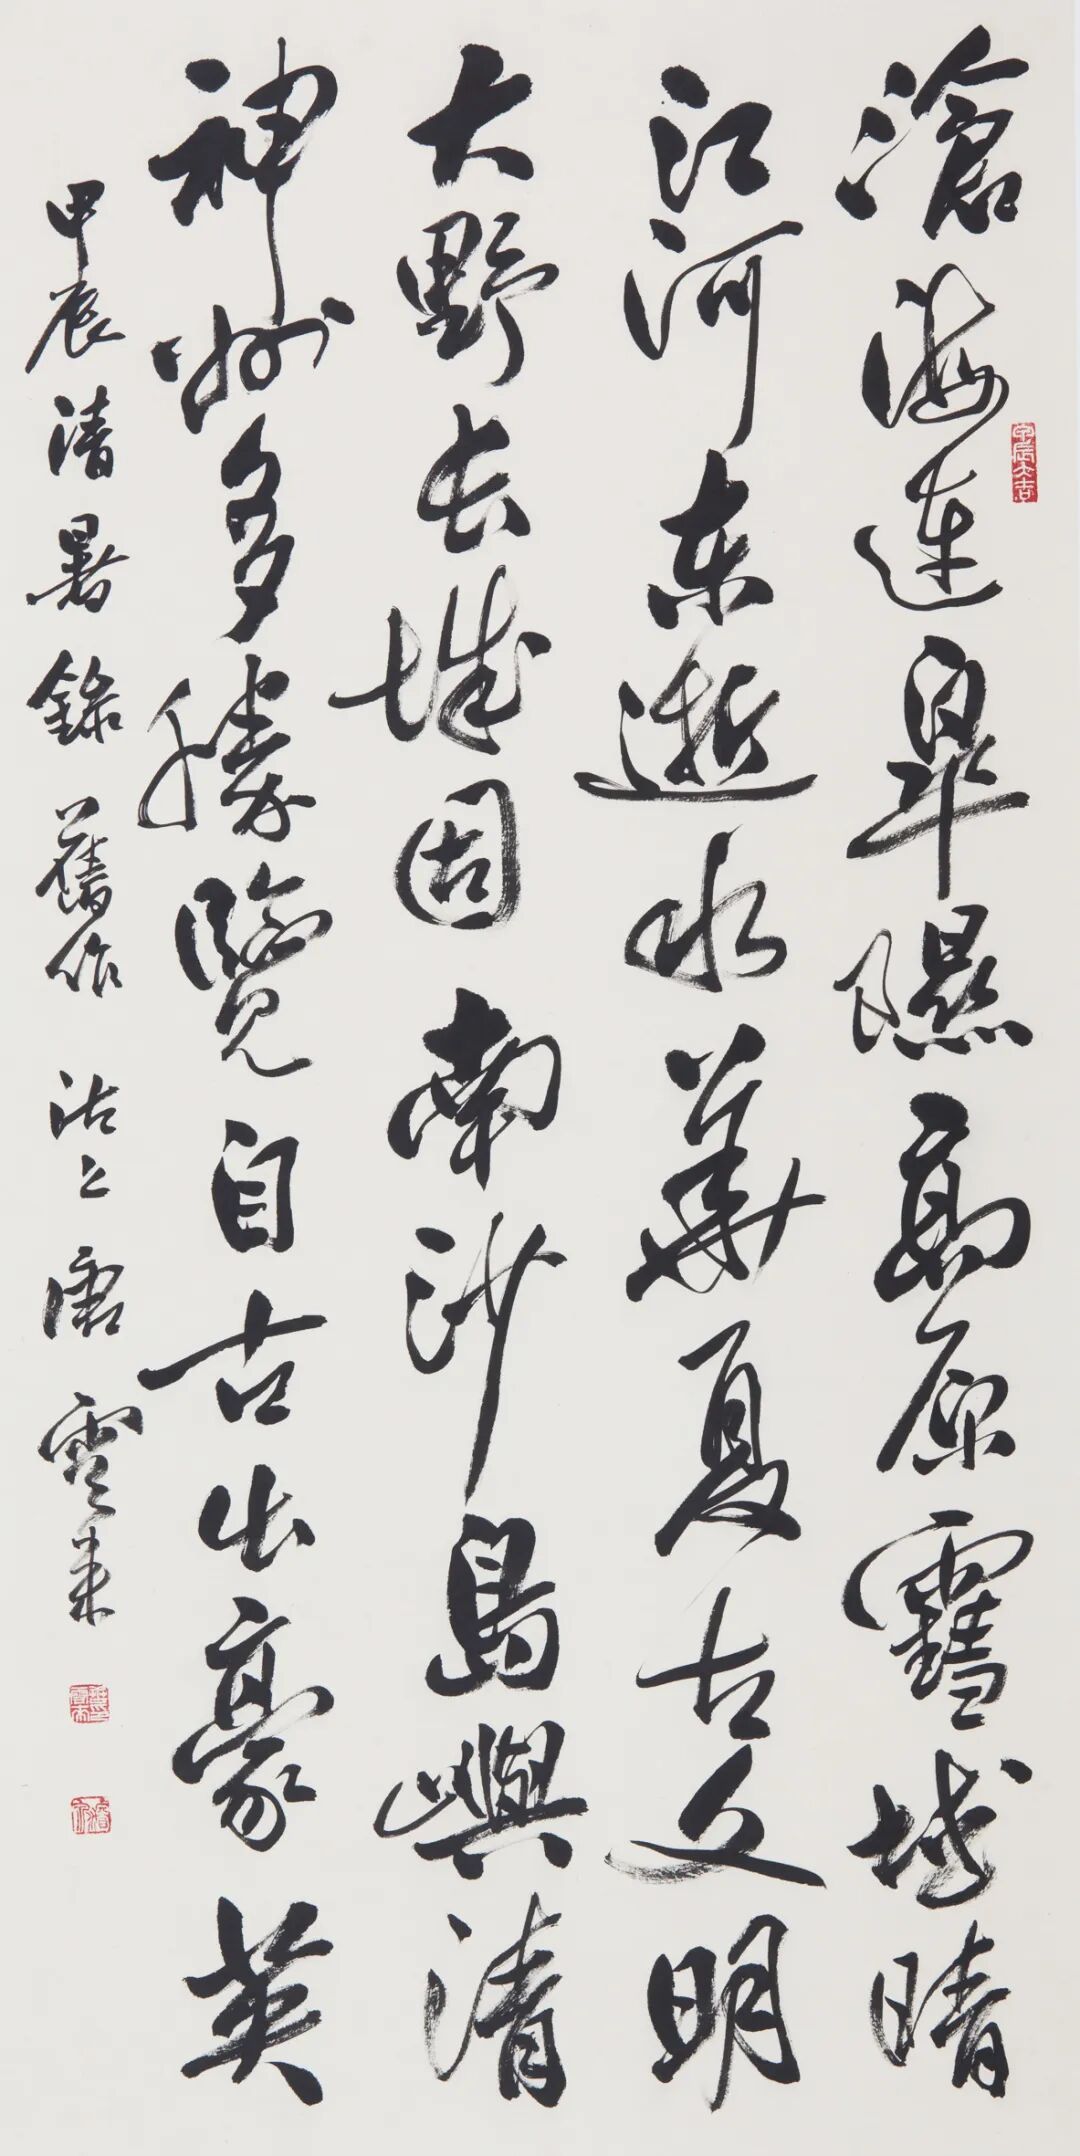 滄海連皋隰高原雪域晴
江河東逝水華夏古文明
大野長城固南沙島嶼清
神州多勝覽自古出豪英
甲辰清暑錄舊作沽上唐雲来
甲辰大吉